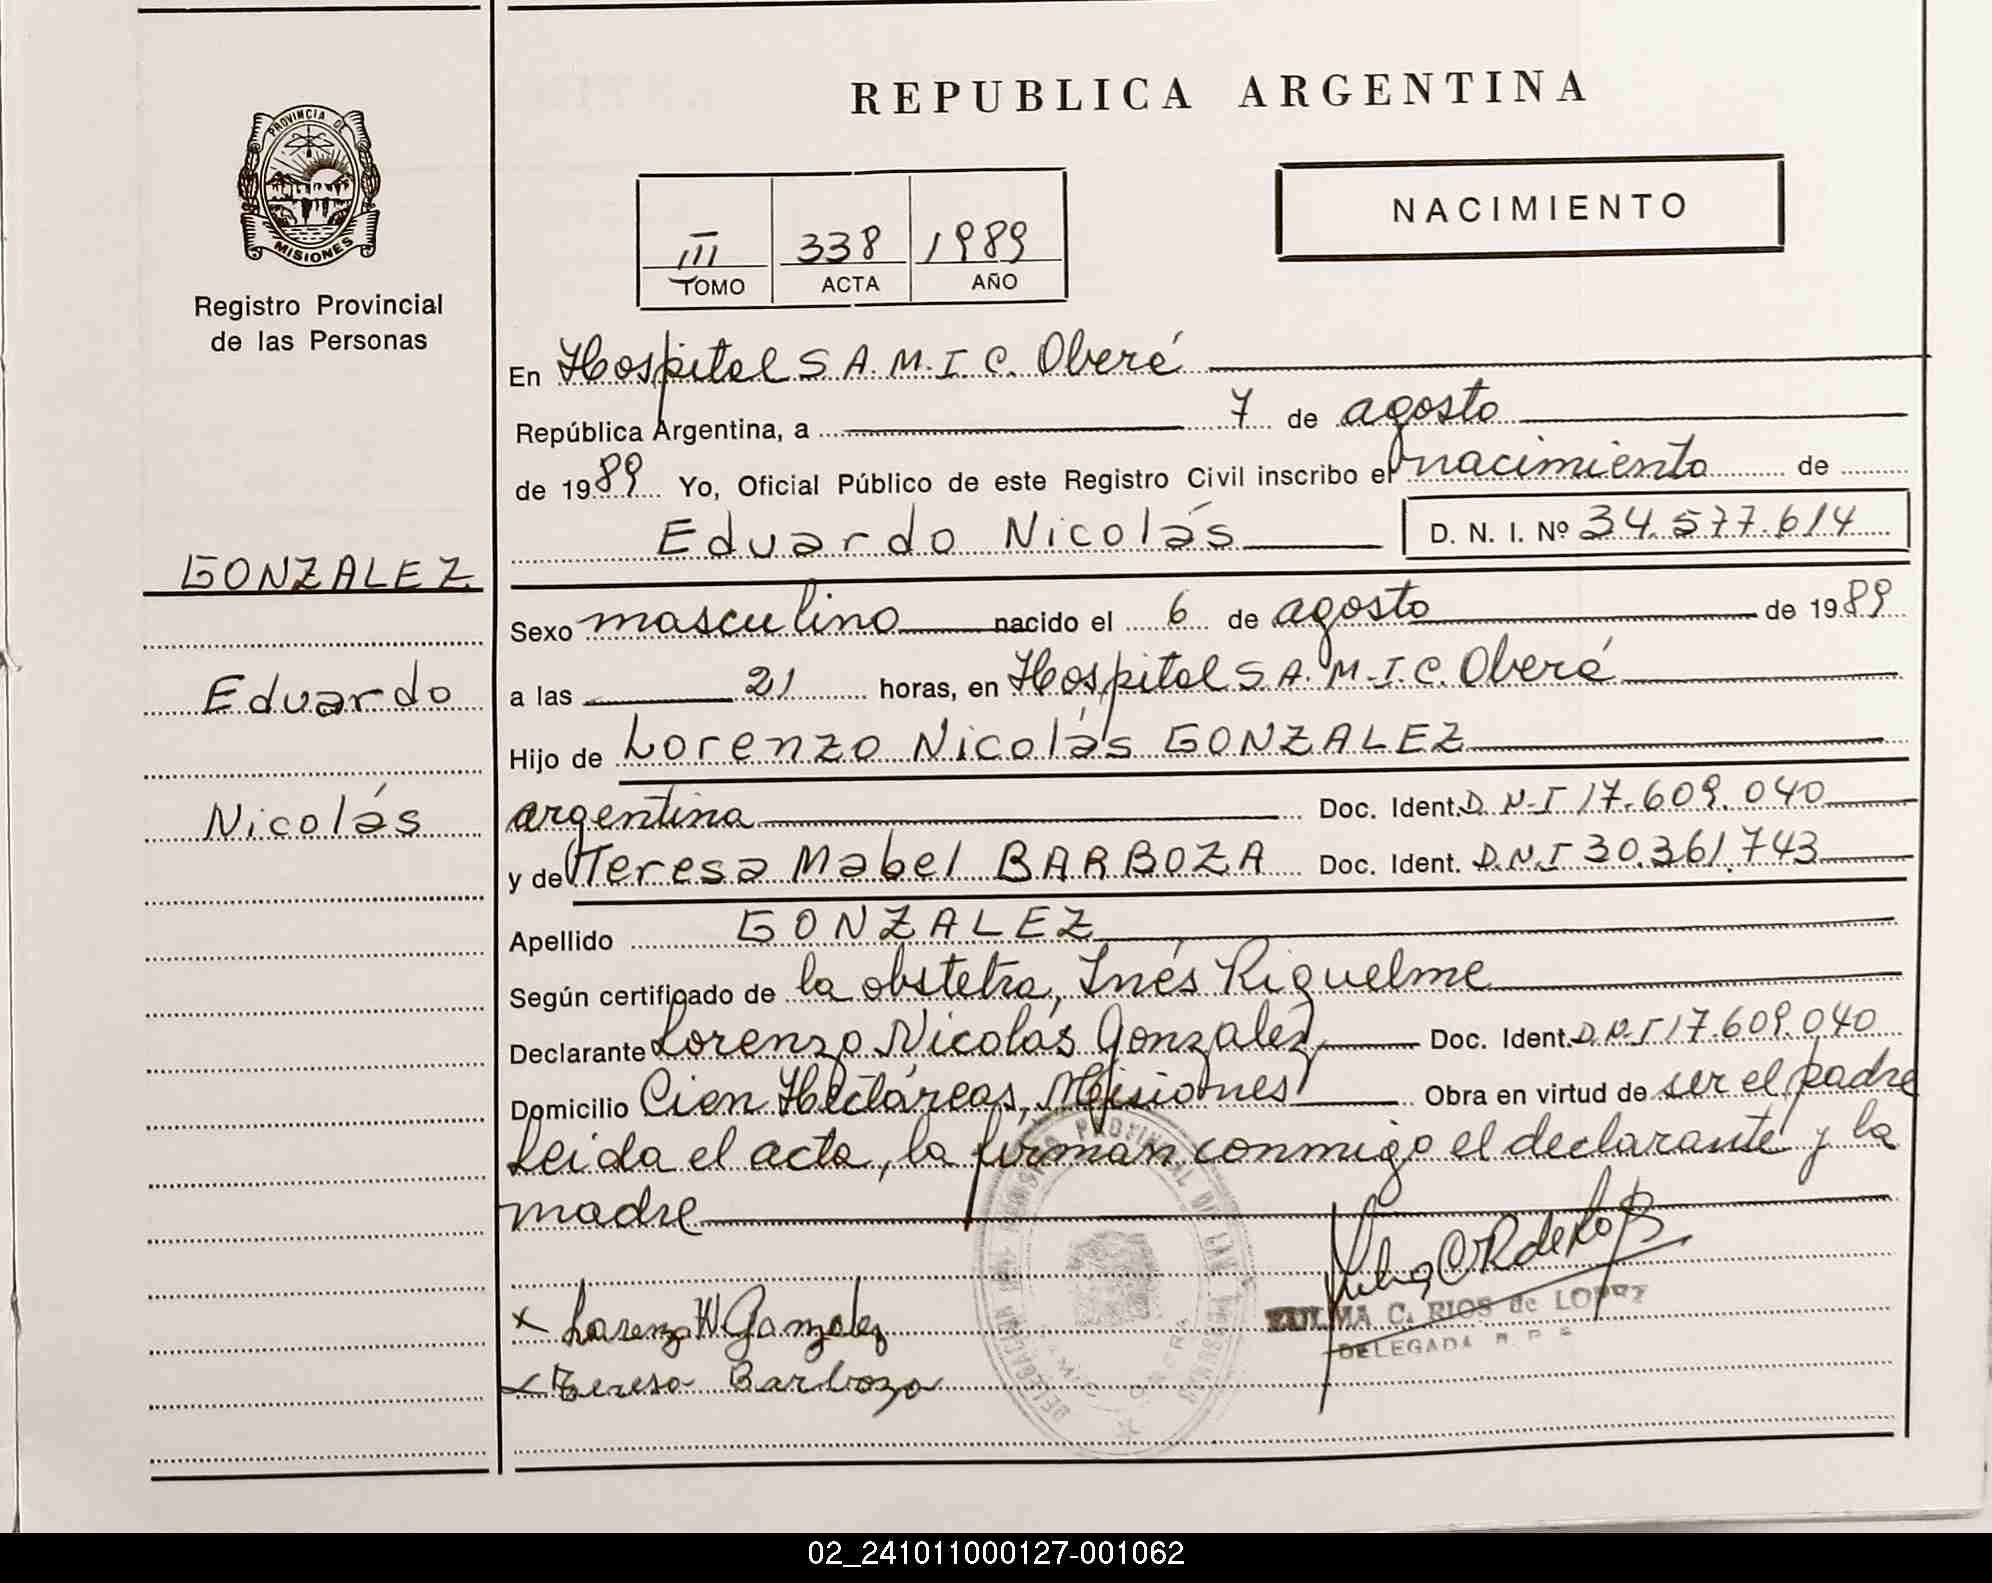 REPUBLICA ARGENTINA
PROVINCIA DE
MISIONES
Registro Provincial
de las Personas
NACIMIENTO
III 338 1989
TOMO ACTA AÑO
En Hospital S A. M. I. C. Oberá
República Argentina, a 7 de agosto
de 1989 Yo, Oficial Público de este Registro Civil inscribo el nacimiento de
Eduardo Nicolás D. N. I. Nº 34.577.614
GONZALEZ
Eduardo
Nicolás
Sexo masculino nacido el 6 de agosto de 1989
a las 21 horas, en Hospital S A. M. I. C. Oberá
Hijo de Lorenzo Nicolás GONZALEZ
argentina Doc. Ident. D. N. I 17.609.040
y de Teresa Mabel BARBOZA Doc. Ident. D.N.I 30.361.743
Apellido GONZALEZ
Según certificado de la obstetra, Inés Riquelme
Declarante Lorenzo Nicolás Gonzalez Doc. Ident. D.N.I 17.609.040
Domicilio Cien Hectáreas, Misiones Obra en virtud de ser el padre
Leida el acta, la firman conmigo el declarante y la
madre
Lorenzo N Gonzalez
Teresa Barboza
ZULMA C. RIOS de LOPEZ
DELEGADA R. P. P.
02_241011000127-001062